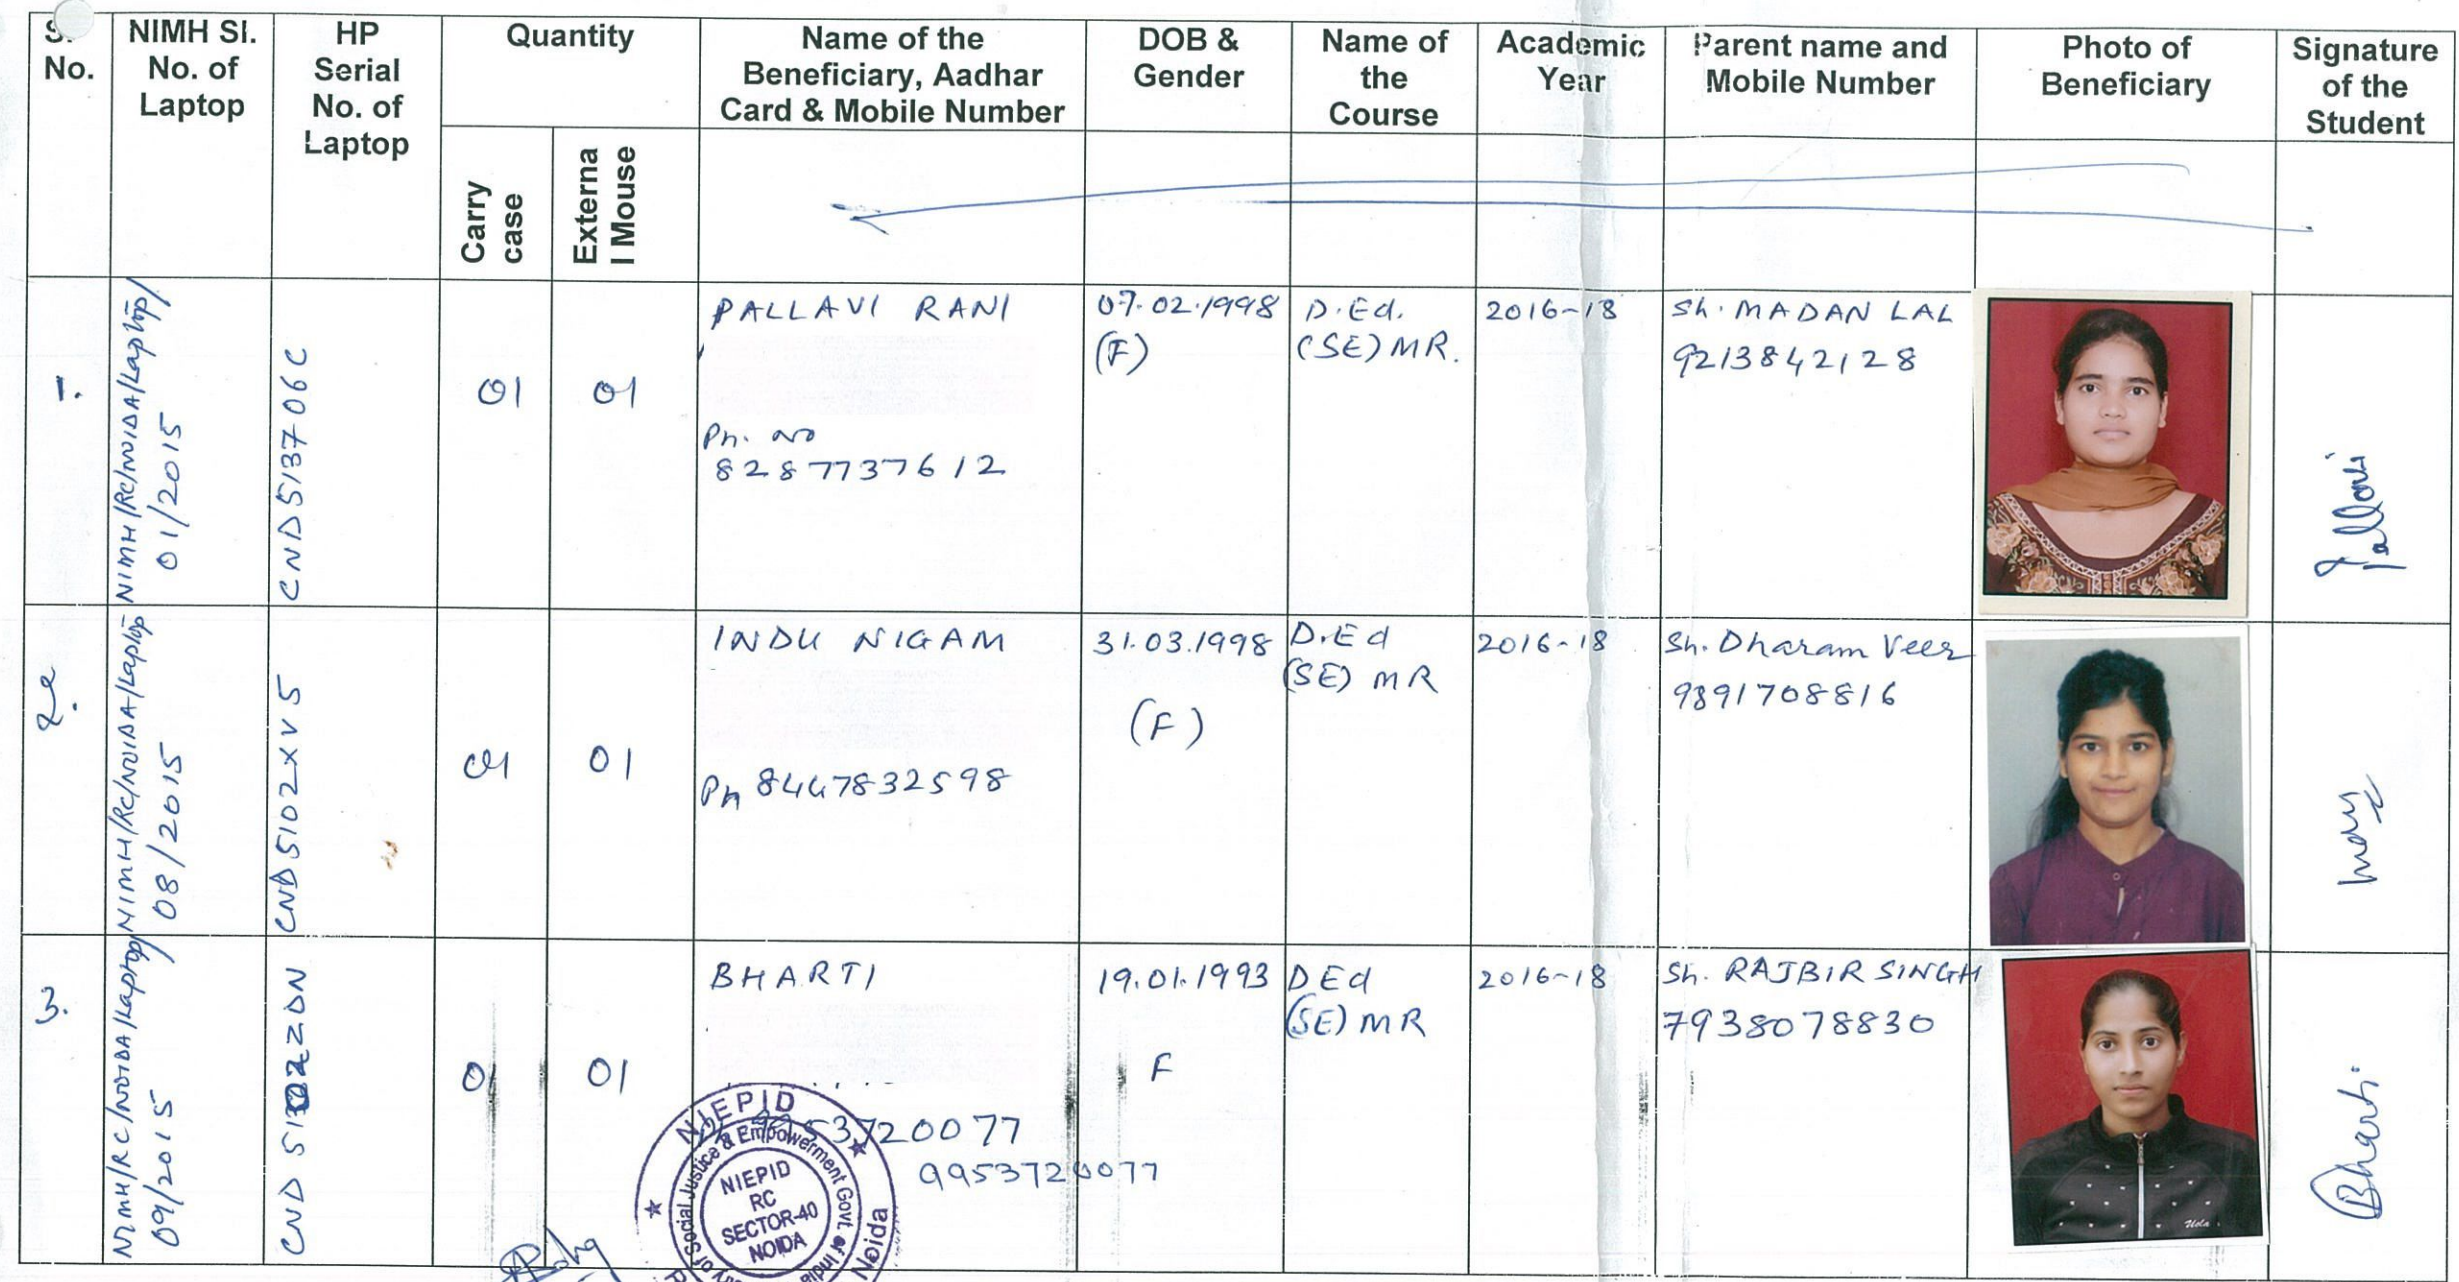 S. No.
NIMH Sl. No. of Laptop
HP Serial No. of Laptop
Quantity
Carry case
Externa l Mouse
Name of the Beneficiary, Aadhar Card & Mobile Number
DOB & Gender
Name of the Course
Academic Year
Parent name and Mobile Number
Photo of Beneficiary
Signature of the Student
1.
NIMH/RC/NOIDA/Laptop/
01/2015
CND513706C
01
01
PALLAVI RANI
Ph. no
8287737612
07.02.1998
(F)
D.Ed.
(SE) MR.
2016-18
Sh. MADAN LAL
9213842128
Pallavi
2.
NIMH/RC/NOIDA/Laptop/
08/2015
CND5102XV5
01
01
INDU NIGAM
Ph 8447832598
31.03.1998
(F)
D.Ed
(SE) MR
2016-18
Sh. Dharam Veer
9891708816
3.
NIMH/RC/NOIDA/Laptop/
09/2015
CND
01
01
BHARTI
9953720077
19.01.1993
F
DEd
(SE) MR
2016-18
Sh. RAJBIR SINGH
7938078830
Bharti
NIEPID
Social Justice & Empowerment Govt. of India
Noida
NIEPID
RC
SECTOR-40
NOIDA